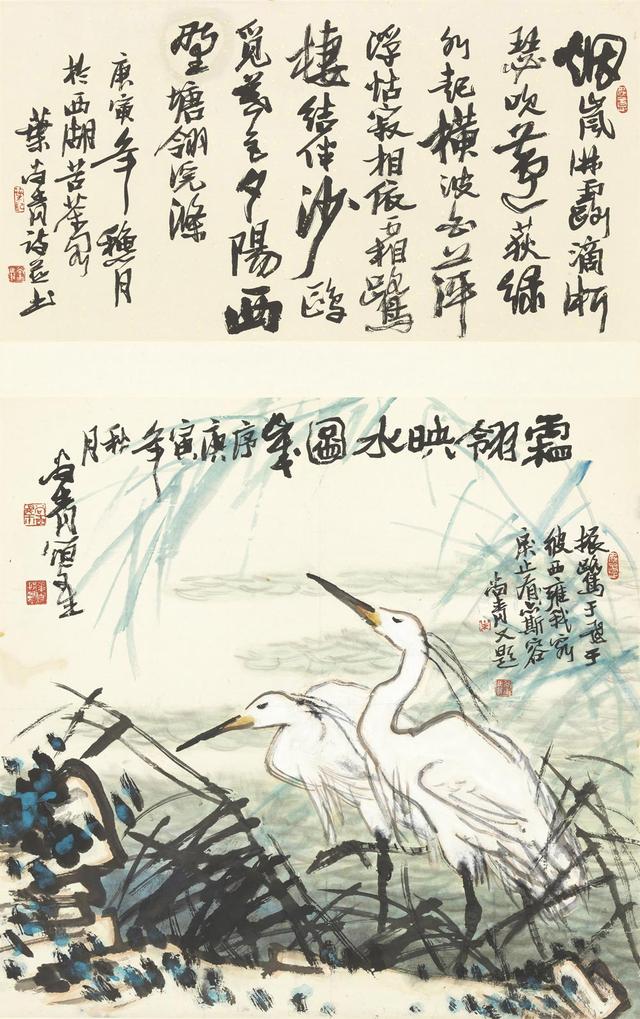 烟嵐沐露滴淅
瑟吹荻緑
起橫波白萍
浮寂相依相鷺
棲結伴沙鷗
覓夕陽西
野塘翎浣滌
庚寅年穐月
於西湖苦茶閣
葉尚青詩並書
霜翎映水圖歲序庚寅年秋月
尚青
振鷺于飛于
彼西雝我客
戾止有斯容
尚青又題